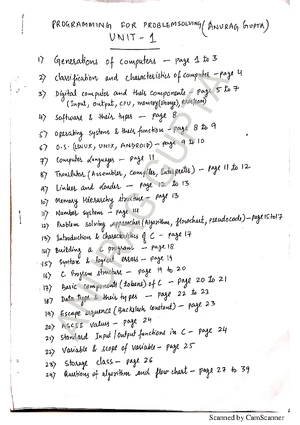 PROGRAMMING FOR PROBLEMSOLVING (ANURAG GUPTA)
UNIT - 1
1) Generations of computers - page 1 to 3
2) classification and characteristics of computer - page 4
3) Digital computer and their components - page 5 to 7
(Input, output, CPU, memory(storage),
4) Software & their types - page 8
5) Operating systems & their function - page 8 to 9
6) O.S. (LINUX, UNIX, ANDROID) - page 9 to 10
7) Computer languages - page 11
8) Translator (Assembler, Compiler, Interpreter) - page 11 to 12
9) Linker and loader - page 12 to 13
10) Memory Hierarchy structure - page 13
11) Number systems - page 14
12) Problem solving approaches (Algorithm, flowchart, pseudocode) - page 15 to 17
13) Introduction & characteristics of C - page 17
14) Building a C program - page 18
15) Syntax & logical errors - page 19
16) C Program structure - page 19 to 20
17) Basic components (tokens) of C - page 20 to 21
18) Data Type & their types - page 22 to 23
19) Escape sequence (Backslash constant) - page 23
20) ASCII values - page 24
21) Standard Input/Output functions in C - page 24
22) Variable & scope of variable - page 25
23) Storage class - page 26
24) Questions of algorithm and flow chart - page 27 to 39
ANURAG GUPTA
Scanned by CamScanner